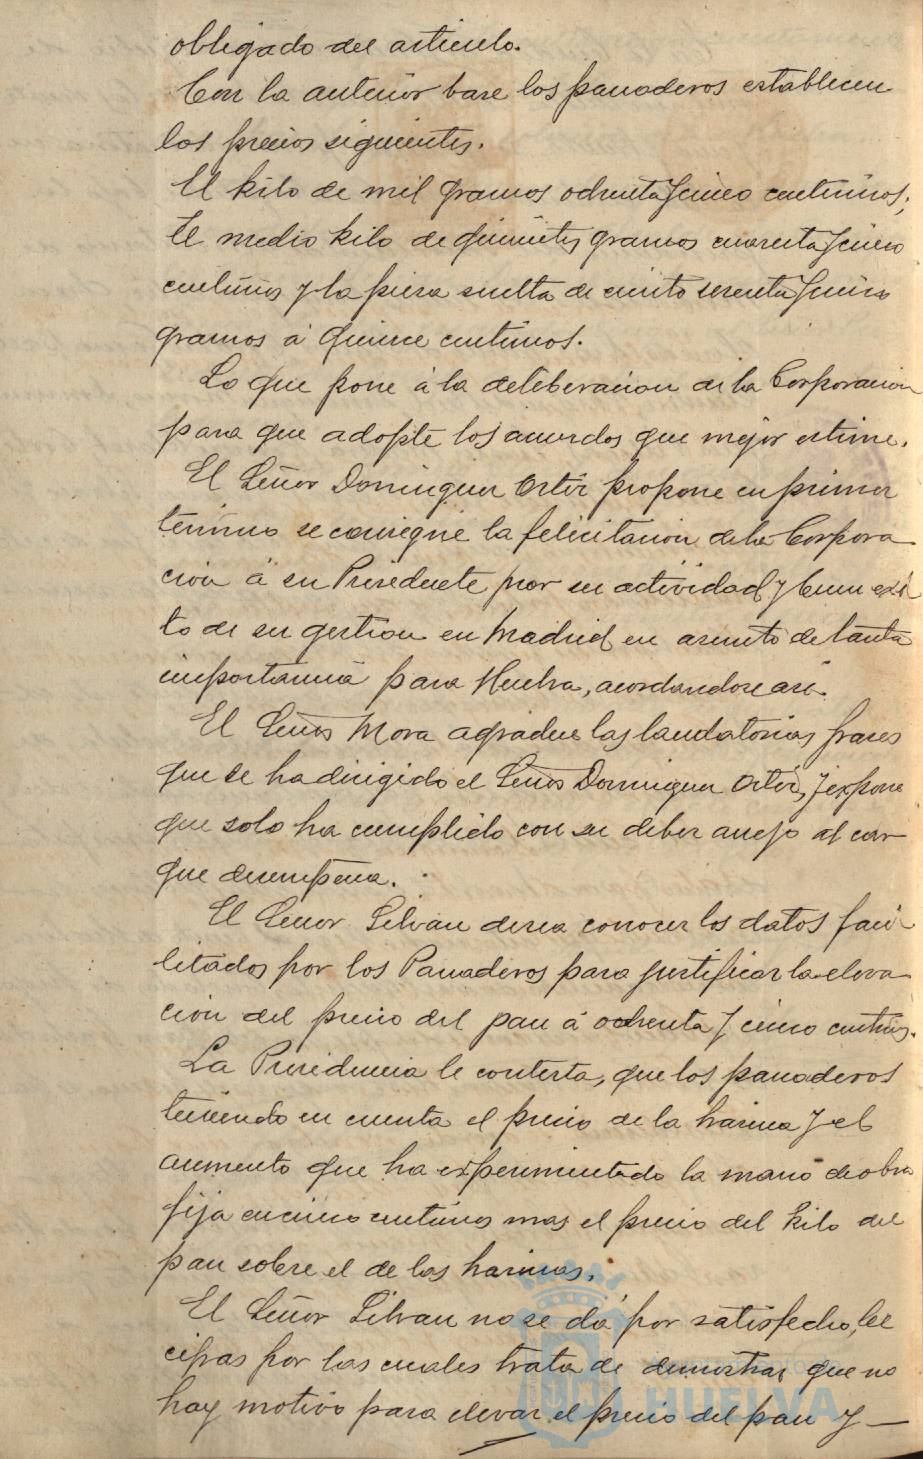 obligado del articulo.
Con la anterior base los panaderos establecen
los precios siguientes.
El kilo de mil gramos ochenta y cinco centimos;
El medio kilo de quinientos gramos cuarenta y cinco
centimos y la pieza suelta de ciento sesenta y cinco
gramos á quince centimos.
Lo que pone á la deliberacion de la Corporacion
para que adopte los acuerdos que mejor estime.
El Señor Dominguez Ortiz propone en primer
término se consigne la felicitacion de la Corpora
cion á su Presidente por su actividad y buen exi
to de su gestion en Madrid en asunto de tanta
importancia para Huelva, acordandose asi.
El Señor Mora agradece las laudatorias frases
que se ha dirigido el Señor Dominguez Ortiz, y expone
que solo ha cumplido con su deber anejo al car
que desempeña.
El Señor Silvan desea conocer los datos faci
litados por los Panaderos para justificar la eleva
cion del precio del pan á ochenta y cinco centims.
La Presidencia le contesta, que los panaderos
teniendo en cuenta el precio de la harina y el
aumento que ha experimentado la mano de obra
fija en cinco centimos mas el precio del kilo del
pan sobre el de las harinas.
El Señor Silvan no se dá por satisfecho, lee
cifras por las cuales trata de demostrar que no
hay motivo para elevar el precio del pan y —
Ayuntamiento de
HUELVA